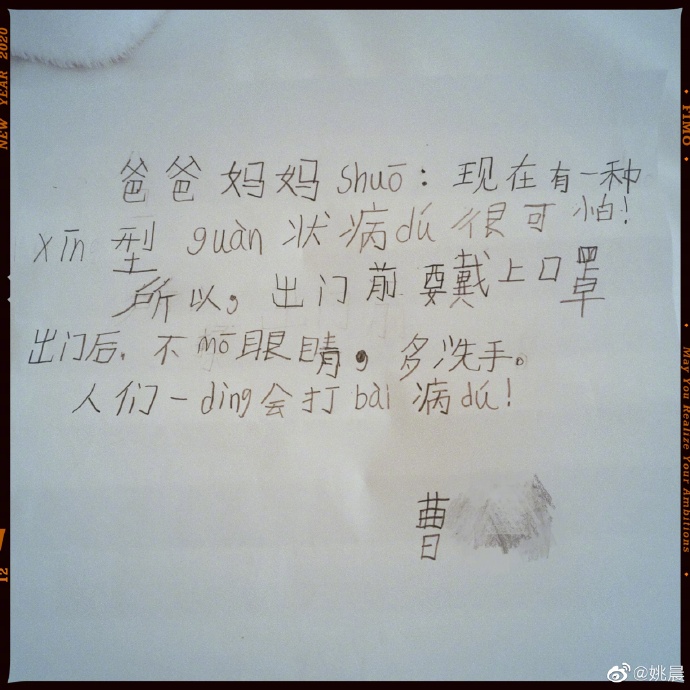 爸爸妈妈shuō：现在有一种
xīn型guàn状病dú很可怕！
所以，出门前要戴上口罩
出门后，不mō眼睛，多洗手。
人们一dìng会打bài病dú！
曹
NEW YEAR 2020
12
FIMO
May You Realize Your Ambitions
@姚晨